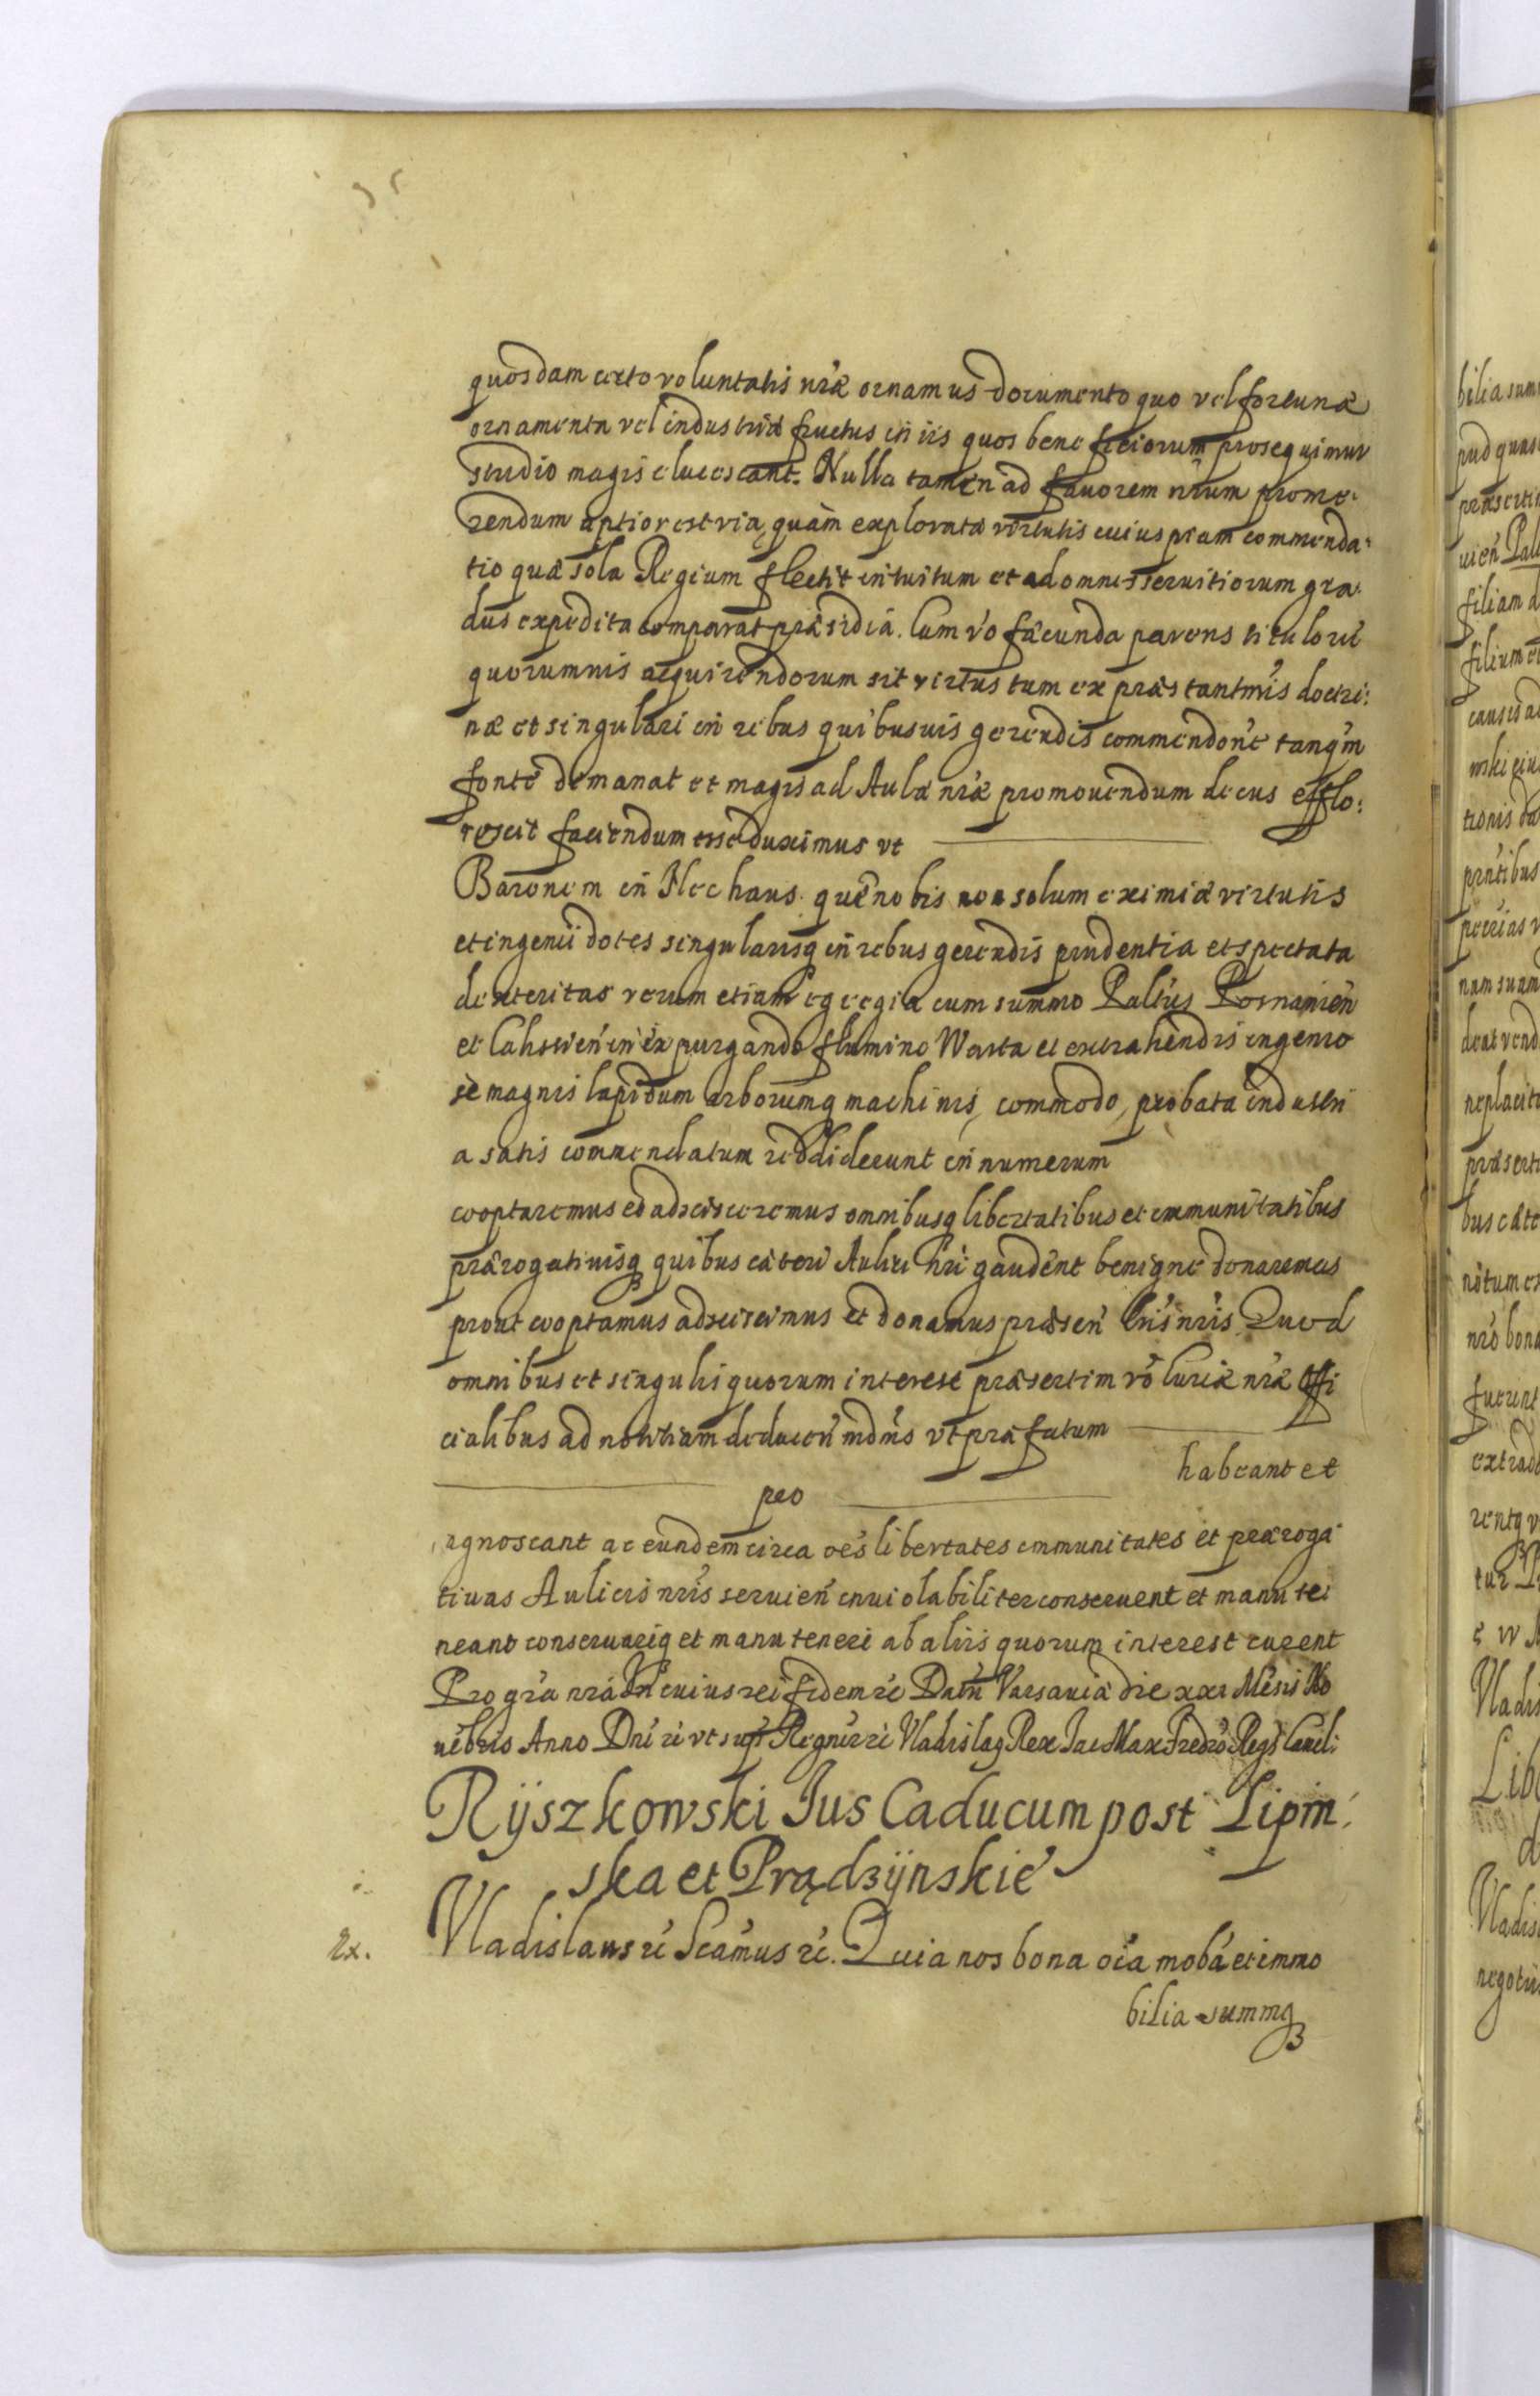 quosdam certo voluntatis nr̃æ ornamus documento quo vel fortunæ
ornamenta vel industriæ fructus in iis quos beneficiorum prosequimur
studio magis elucescant. Nulla tamen ad favorem nr̃um prome:
rendum aptior est via, quàm explorata virtutis cuiuspiam commenda:
tio quæ sola Regium flectit intuitum et ad omnes servitiorum gra:
dus expedita comparat præsidia. Cum v̊o fæcunda parens titulorũ
quorumuis acquirendorum sit virtus tum ex præstantmis doctri:
næ et singulari in rebus quibusuis gerendis commendoñe tanq̃m
fonte demanat et magis ad Aulæ nr̃æ promouendum decus efflo:
rescit faciendum esse duximus vt
Baronem in Hechaus. quẽ nobis non solum eximiæ virtutis
et ingenii dotes singularisq in rebus gerendis prudentia et spectata
dexteritas verum etiam egregia cum summo Paltus Posnanień
et Calisień in expurgando flumine Warta et extrahendis ingenio
sè magnis lapidum arborumq machinis, commodo, probata industri
a satis commendatum reddiderunt in numerum
cooptaremus et adscisceremus omnibusq libertatibus et immunitatibus
prærogativisq quibus cæteri Aulici nri gaudent benigne donaremus
prout cooptamus adsciscimus et donamus præsen̄ lris nris Quod
omnibus et singulis quorum interest præsertim v̊o Curiæ nr̃æ Offi
cialibus ad notitiam deducen̄ mdm̄s vt præfatum
habeant et
pro
agnoscant ac eundem circa oẽs libertates immunitates et præroga
tivas Aulicis nris servien̄ inviolabiliter conservent et manu te:
neant conservariq et manuteneri ab aliis quorum interest curent
Pro gr̃a nr̃a In cuius rei fidem rc̃ Datũ Varsaviæ die xxi Mensis No
uẽbris Anno Dni rc̃ vt supr̃ Regnir̃ rc̃ Vladislaq Rex Jac Max Fredro Regs Cancl:
Ryszkowski Jus Caducum post Lipin:
ska et Prądzynskiẽ
Vladislaus rc̃ Scãmus rc̃. Quia nos bona oĩa mobã et immo
bilia summq